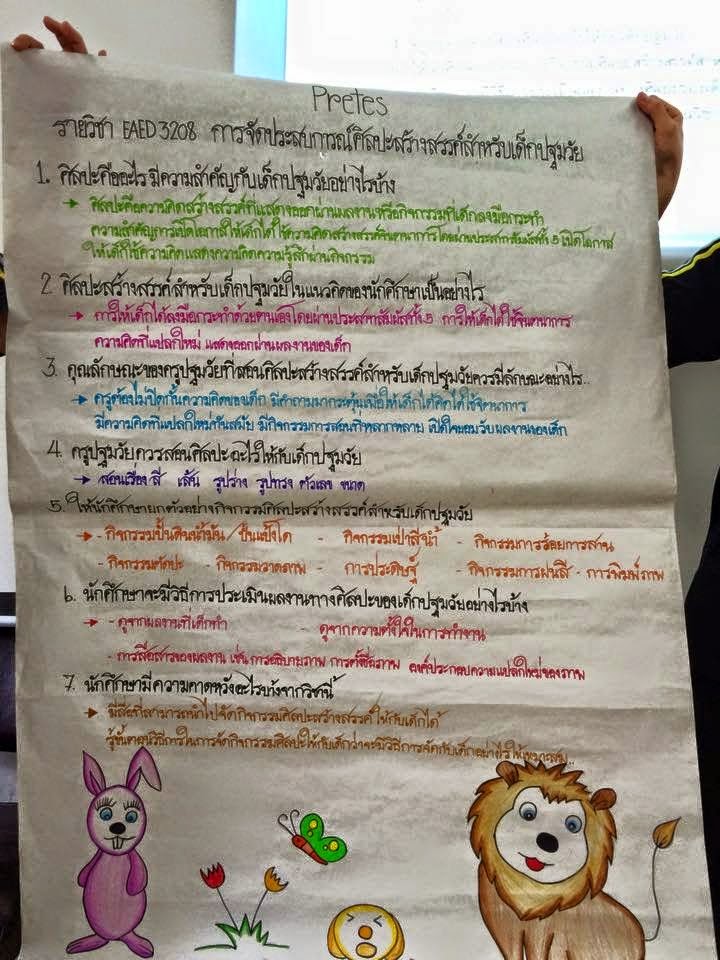 Pretes
รายวิชา EAED 3208 การจัดประสบการณ์ศิลปะสร้างสรรค์สำหรับเด็กปฐมวัย
1. ศิลปะคืออะไร มีความสำคัญกับเด็กปฐมวัยอย่างไรบ้าง
→ ศิลปะคือความคิดสร้างสรรค์ที่แสดงออกผ่านผลงานหรือกิจกรรมที่เด็กลงมือกระทำ
ความสำคัญการเปิดโอกาสให้เด็กได้ใช้ความคิดสร้างสรรค์จินตนาการโดยผ่านประสาทสัมผัสทั้ง 5 เปิดโอกาส
ให้เด็กใช้ความคิดแสดงความคิดความรู้สึกผ่านกิจกรรม
2. ศิลปะสร้างสรรค์สำหรับเด็กปฐมวัยในแนวคิดของนักศึกษาเป็นอย่างไร
→ การให้เด็กได้ลงมือกระทำด้วยตนเองโดยผ่านประสาทสัมผัสทั้ง 5 การให้เด็กได้ใช้จินตนาการ
ความคิดที่แปลกใหม่ แสดงออกผ่านผลงานของเด็ก
3. คุณลักษณะของครูปฐมวัยที่สอนศิลปะสร้างสรรค์สำหรับเด็กปฐมวัยควรมีลักษณะอย่างไร..
→ ครูต้องไม่ปิดกั้นความคิดของเด็ก มีคำถามมากระตุ้นเพื่อให้เด็กได้คิดได้ใช้จินตนาการ
มีความคิดที่แปลกใหม่ทันสมัย มีกิจกรรมการสอนที่หลากหลาย เปิดใจยอมรับผลงานของเด็ก
4. ครูปฐมวัยควรสอนศิลปะอะไรให้กับเด็กปฐมวัย
→ สอนเรื่อง สี เส้น รูปร่าง รูปทรง ตัวเลข ขนาด
5. ให้นักศึกษายกตัวอย่างกิจกรรมศิลปะสร้างสรรค์สำหรับเด็กปฐมวัย
→ - กิจกรรมปั้นดินน้ำมัน/ปั้นแป้งโด - กิจกรรมเป่าสีน้ำ - กิจกรรมการร้อยการสาน
- กิจกรรมตัดปะ - กิจกรรมวาดภาพ - การประดิษฐ์ - กิจกรรมการฝนสี - การพิมพ์ภาพ
6. นักศึกษาจะมีวิธีการประเมินผลงานทางศิลปะของเด็กปฐมวัยอย่างไรบ้าง
→ - ดูจากผลงานที่เด็กทำ - ดูจากความตั้งใจในการทำงาน
- การสื่อสารของผลงาน เช่น การอธิบายภาพ การตั้งชื่อภาพ องค์ประกอบความแปลกใหม่ของภาพ
7. นักศึกษามีความคาดหวังอะไรบ้างจากวิชานี้
→ มีสื่อที่สามารถนำไปจัดกิจกรรมศิลปะสร้างสรรค์ให้กับเด็กได้
รู้ขั้นตอนวิธีการในการจัดกิจกรรมศิลปะให้กับเด็กว่าจะมีวิธีการจัดกับเด็กอย่างไรให้เหมาะสม..